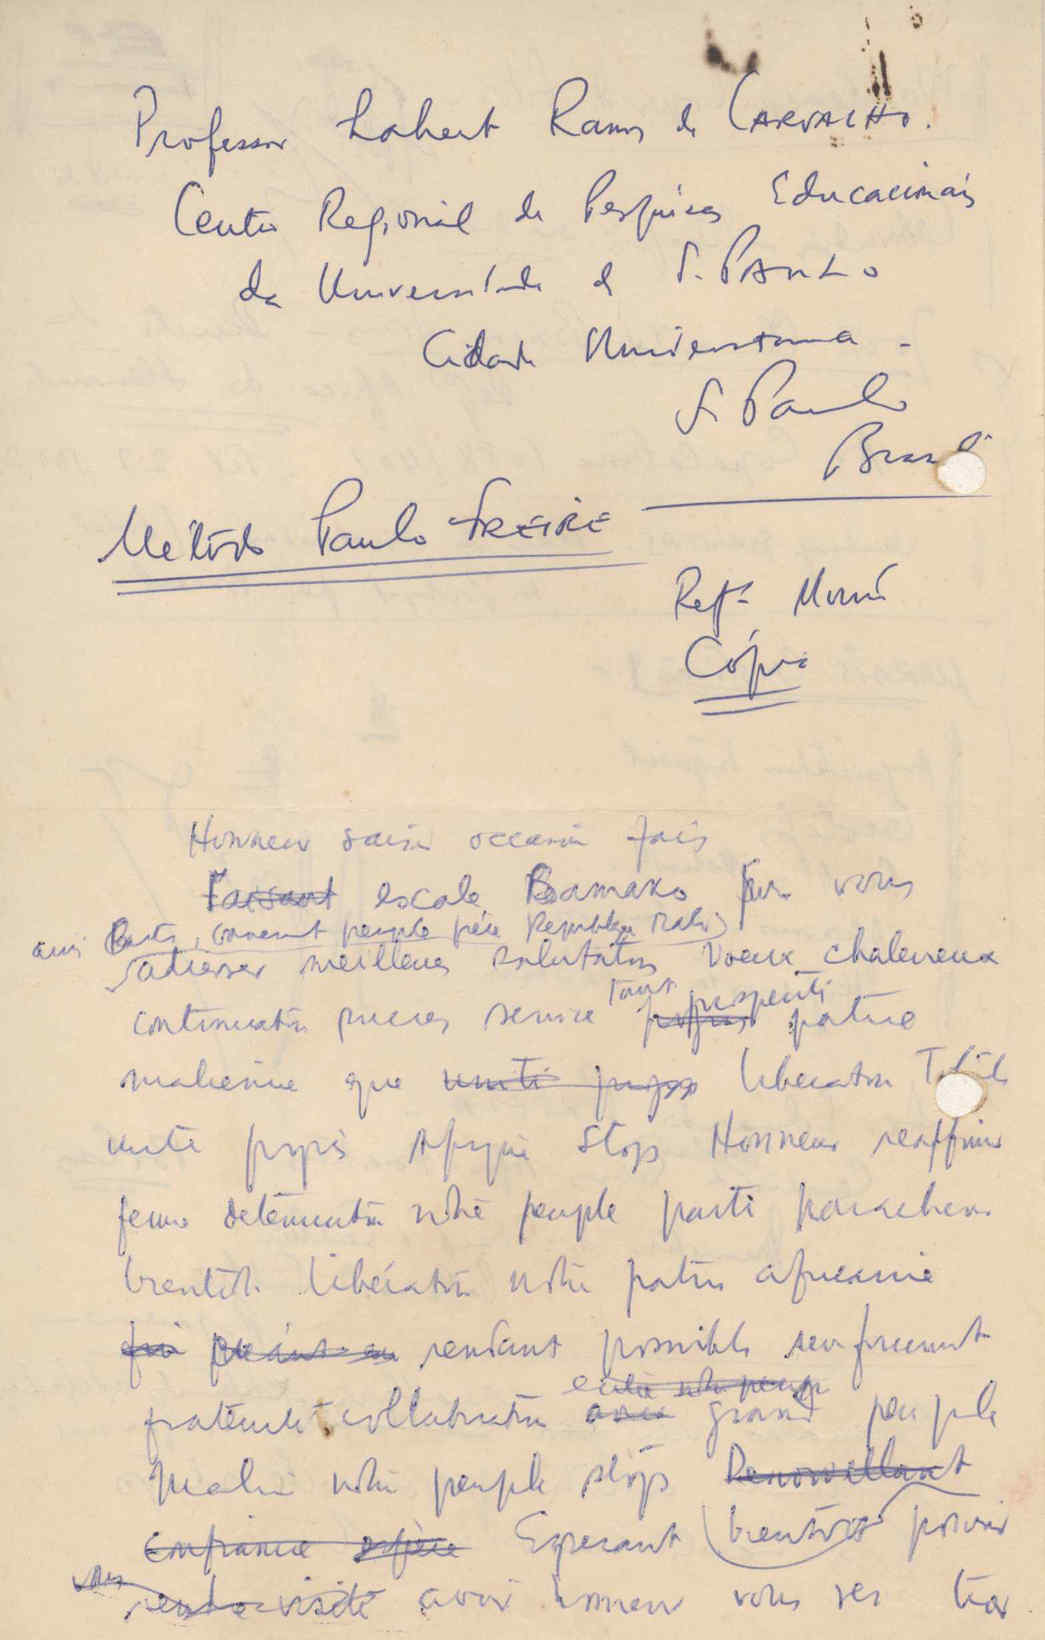 Professor Lahert Ramos de CARVALHO.
Centro Regional de Pesquisas Educacionais
da Universidade de S. PAULO
Cidade Universitaria -
S. Paulo
Brasil
Método Paulo FREIRE
Refª
Cópia
Honneur saisir occasion fais
Passant escale Bamako pour vous
ami Parti, gouvernement peuple frère République Mali
adresser meilleures salutations voeux chaleureux
continuation succes service tant prospérité patrie
malienne que unité libération Totale
unité progrès Afrique Stop Honneur reaffirmer
ferme détermination notre peuple parti parachever
bientôt libération notre patrie africaine
qui rendant possible renforcement
fraternelle collaboration entre notre peuple
avec grand peuple
Malien notre peuple stop Renouvellant
confiance espère Esperant bientôt pouvoir
vous rendre visite avoir honneur vous